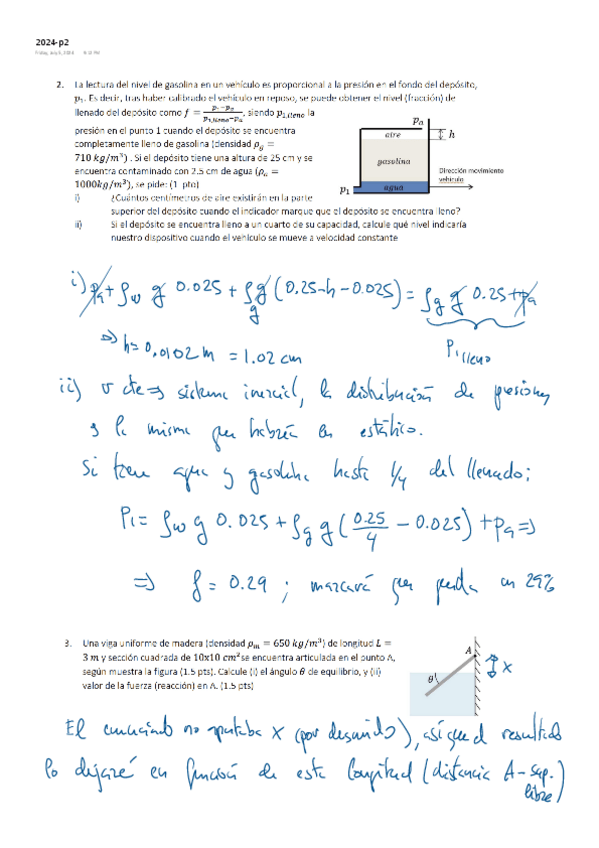 2024-p2
2. La lectura del nivel de gasolina en un vehículo es proporcional a la presión en el fondo del depósito,
p₁. Es decir, tras haber calibrado el vehículo en reposo, se puede obtener el nivel (fracción) de
llenado del depósito como f = (p₁−pₐ)/(p₁,lleno−pₐ), siendo p₁,lleno la
presión en el punto 1 cuando el depósito se encuentra
completamente lleno de gasolina (densidad ρg =
710 kg/m³) . Si el depósito tiene una altura de 25 cm y se
encuentra contaminado con 2.5 cm de agua (ρₐ =
1000kg/m³), se pide: (1 pto)
pₐ
aire
h
gasolina
agua
p₁
Dirección movimiento
vehículo
i) ¿Cuántos centímetros de aire existirán en la parte
superior del depósito cuando el indicador marque que el depósito se encuentra lleno?
ii) Si el depósito se encuentra lleno a un cuarto de su capacidad, calcule qué nivel indicaría
nuestro dispositivo cuando el vehículo se mueve a velocidad constante
i) pₐ + ρw g 0.025 + ρg g (0,25-h-0.025) = ρg g 0.25 + pₐ
P₁ lleno
=> h= 0,0102 m = 1.02 cm
ii) v cte => sistema inercial, la distribución de presiones
es la misma que habría en estático.
Si tiene agua y gasolina hasta 1/4 del llenado;
P₁ = ρw g 0.025 + ρg g (0.25/4 - 0.025) + pₐ =>
=> f = 0.29 ; marcará que queda un 29%
3. Una viga uniforme de madera (densidad ρm = 650 kg/m³) de longitud L =
3 m y sección cuadrada de 10x10 cm² se encuentra articulada en el punto A,
según muestra la figura (1.5 pts). Calcule (i) el ángulo θ de equilibrio, y (ii)
valor de la fuerza (reacción) en A. (1.5 pts)
A
θ
x
El enunciado no aportaba x (por descuido), así que el resultado
lo dejaré en función de esta longitud (distancia A-sup.
libre)